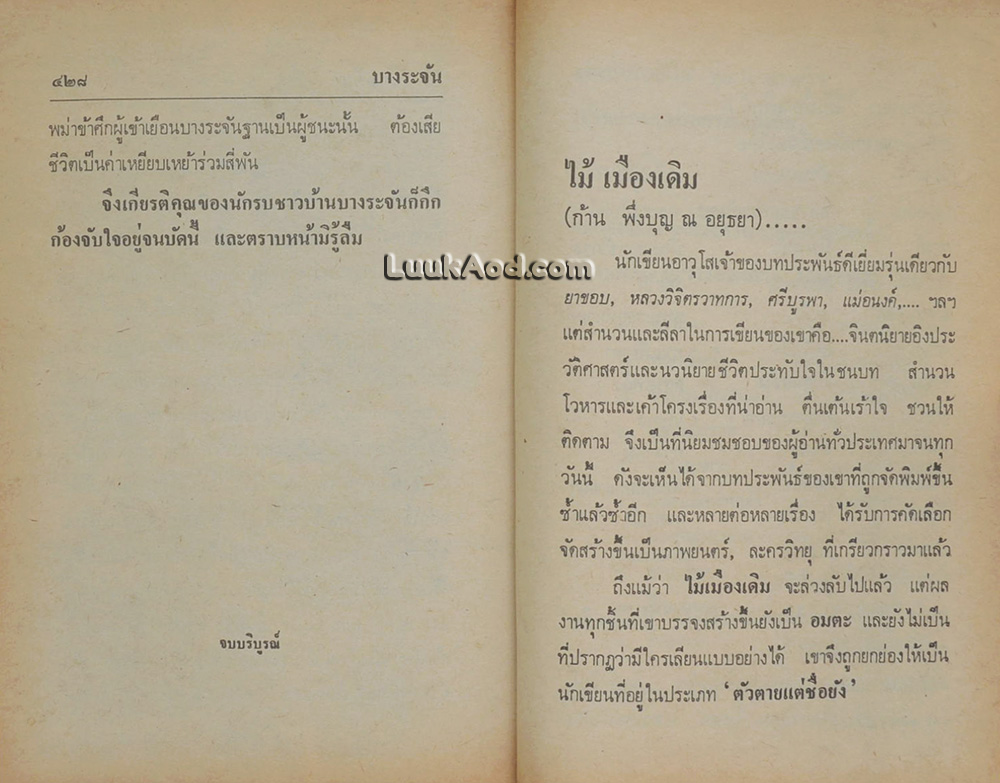 ๔๒๘ บางระจัน
พม่าข้าศึกผู้เข้าเยือนบางระจันฐานเป็นผู้ชนะนั้น ต้องเสีย
ชีวิตเป็นค่าเหยียบเหย้าร่วมสี่พัน
จึงเกียรติคุณของนักรบชาวบ้านบางระจันก็กึก
ก้องจับใจอยู่จนบัดนี้ และตราบหน้ามิรู้ลืม
LuukAod.com
จบบริบูรณ์
ไม้ เมืองเดิม
(ก้าน พึ่งบุญ ณ อยุธยา).....
นักเขียนอาวุโสเจ้าของบทประพันธ์ดีเยี่ยมรุ่นเดียวกับ
ยาขอบ, หลวงวิจิตรวาทการ, ศรีบูรพา, แม่อนงค์,.... ฯลฯ
แต่สำนวนและลีลาในการเขียนของเขาคือ....จินตนิยายอิงประ
วัติศาสตร์และนวนิยายชีวิตประทับใจในชนบท สำนวน
โวหารและเค้าโครงเรื่องที่น่าอ่าน ตื่นเต้นเร้าใจ ชวนให้
ติดตาม จึงเป็นที่นิยมชมชอบของผู้อ่านทั่วประเทศมาจนทุก
วันนี้ ดังจะเห็นได้จากบทประพันธ์ของเขาที่ถูกจัดพิมพ์ขึ้น
ซ้ำแล้วซ้ำอีก และหลายต่อหลายเรื่อง ได้รับการคัดเลือก
จัดสร้างขึ้นเป็นภาพยนตร์, ละครวิทยุ ที่เกรียวกราวมาแล้ว
ถึงแม้ว่า ไม้เมืองเดิม จะล่วงลับไปแล้ว แต่ผล
งานทุกชิ้นที่เขาบรรจงสร้างขึ้นยังเป็น อมตะ และยังไม่เป็น
ที่ปรากฏว่ามีใครเลียนแบบอย่างได้ เขาจึงถูกยกย่องให้เป็น
นักเขียนที่อยู่ในประเภท ‘ตัวตายแต่ชื่อยัง’